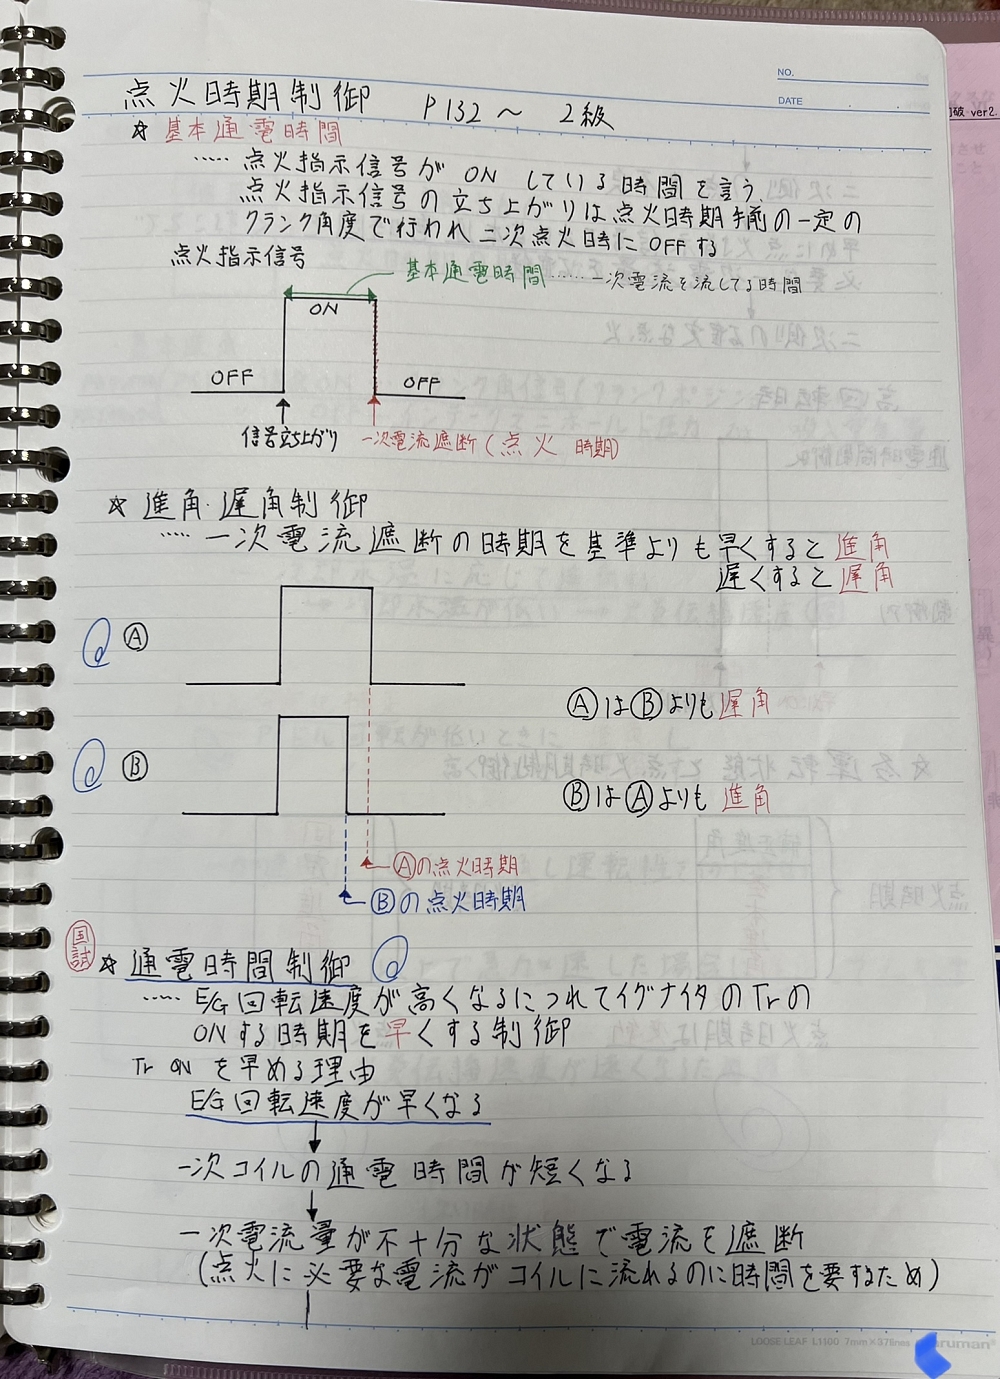 NO.
DATE
点火時期制御 P132〜 2級
破 ver2.
☆ 基本通電時間
‥‥ 点火指示信号が ON している時間を言う.
点火指示信号の立ち上がりは点火時期手前の一定の
クランク角度で行われ二次点火時にOFFする
点火指示信号
基本通電時間 ‥‥‥ 一次電流を流してる時間
ON
OFF
OFF
信号立ち上がり
一次電流遮断(点火 時期)
☆ 進角・遅角制御
‥‥ 一次電流遮断の時期を基準よりも早くすると進角
遅くすると遅角
Ⓐ
ⒶはⒷよりも遅角
Ⓑ
ⒷはⒶよりも 進角
Ⓐの点火時期
Ⓑの点火時期
国試
☆ 通電時間制御
‥‥ E/G回転速度が高くなるにつれてイグナイタのTrの
ONする時期を早くする制御
Tr ON を早める理由
E/G回転速度が早くなる
↓
一次コイルの通電時間が短くなる
↓
一次電流量が不十分な状態で電流を遮断
(点火に必要な電流がコイルに流れるのに時間を要するため)
LOOSE LEAF L1100 7mm×37lines